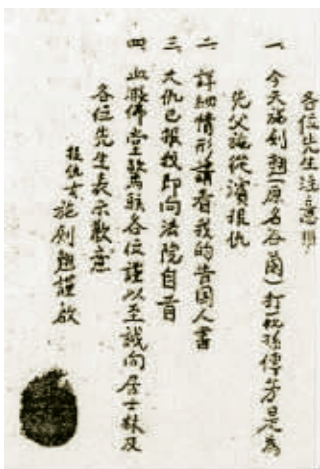 各位先生注意!!!
一 今天施剑翘(原名谷蘭)打死孫傳芳是為
先父施從濱报仇
二 詳細情形請看我的告国人書
三 大仇已报我即向法院自首
四 血賤佛堂驚駭各位謹以至誠向居士林及
各位先生表示歉意
报仇女施剑翘謹啟